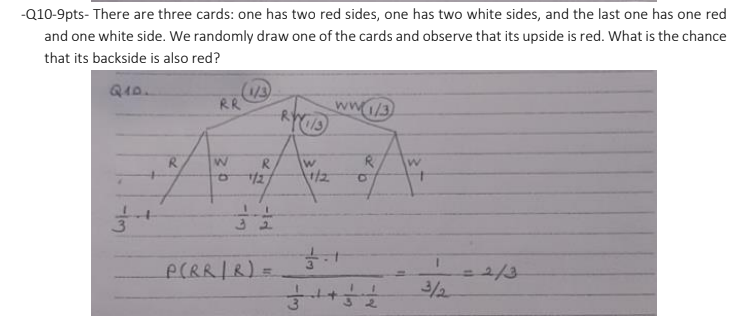 -Q10-9pts- There are three cards: one has two red sides, one has two white sides, and the last one has one red
and one white side. We randomly draw one of the cards and observe that its upside is red. What is the chance
that its backside is also red?
Q10.
RR 1/3
RW 1/3
WW 1/3
R W R W R W
1 0 1/2 1/2 0 1
1/3 · 1 1/3 · 1/2
P(RR|R) = (1/3 · 1) / (1/3 · 1 + 1/3 · 1/2) = 1 / (3/2) = 2/3